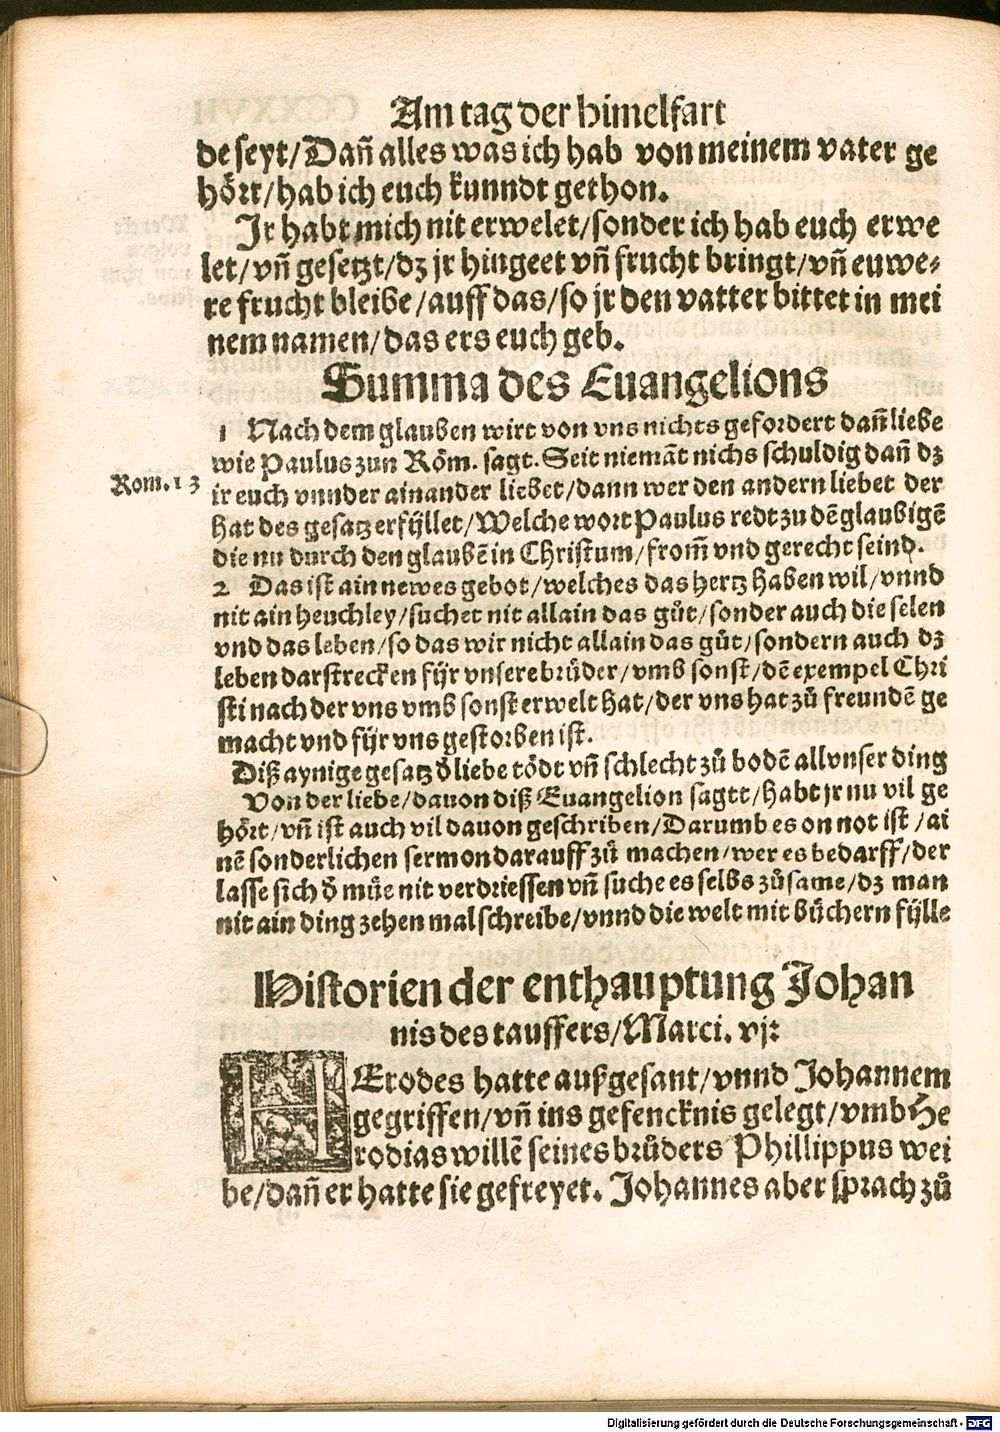 Am tag der himelfart
de seyt/Dañ alles was ich hab von meinem vater ge
hört/hab ich euch kunndt gethon.
Ir habt mich nit erwelet/sonder ich hab euch erwe
let/vñ gesetzt/dz jr hingeet vñ frucht bringt/vñ euwe⸗
re frucht bleibe/auff das/so jr den vatter bittet in mei
nem namen/das ers euch geb.
Summa des Euangelions
1 Nach dem glauben wirt von vns nichts gefordert dañ liebe
wie Paulus zun Röm. sagt. Seit niemãt nichs schuldig dañ dz
Rom.13
ir euch vnnder ainander liebet/dann wer den andern liebet der
hat des gesatz erfÿllet/Welche wort Paulus redt zu dẽ glaubigẽ
die nu durch den glaubẽ in Christum/from̃ vnd gerecht seind.
2 Das ist ain newes gebot/welches das hertz haben wil/vnnd
nit ain heuchley/suchet nit allain das gůt/sonder auch die selen
vnd das leben/so das wir nicht allain das gůt/sondern auch dz
leben darstrecken fÿr vnsere brůder/vmb sonst/dẽ exempel Chri
sti nach der vns vmb sonst erwelt hat/der vns hat zů freundẽ ge
macht vnd fÿr vns gestorben ist.
Diß aynige gesatz d̕ liebe tödt vñ schlecht zů bodẽ all vnser ding
Von der liebe/dauon diß Euangelion sagtt/habt jr nu vil ge
hört/vñ ist auch vil dauon geschriben/Darumb es on not ist/ai
nẽ sonderlichen sermon darauff zů machen/wer es bedarff/der
lasse sich d̕ můe nit verdriessen vñ suche es selbs zůsame/dz man
nit ain ding zehen mal schreibe/vnnd die welt mit bůchern fÿlle
Historien der enthauptung Johan
nis des tauffers/Marci. vj:
HErodes hatte außgesant/vnnd Johannem
gegriffen/vñ ins gefencknis gelegt/vmb He
rodias willẽ seines brůders Phillippus wei
be/dañ er hatte sie gefreyet. Johannes aber sprach zů
Digitalisierung gefördert durch die Deutsche Forschungsgemeinschaft - DFG